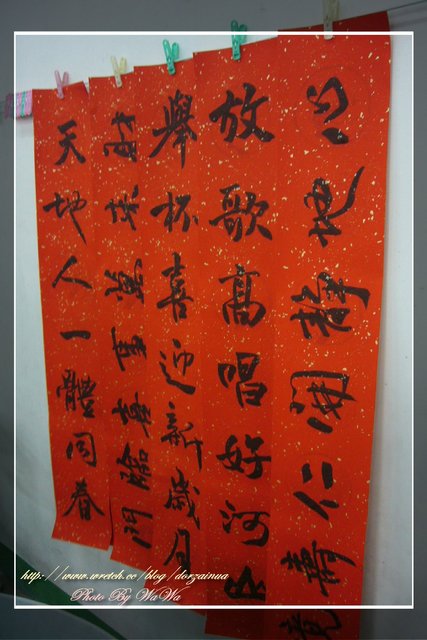 心地靜閒仁壽
放歌高唱好河山
舉杯喜迎新歲月
財喜臨門
天地人一體同春
http://www.wretch.cc/blog/dorzainua
Photo By WaWa